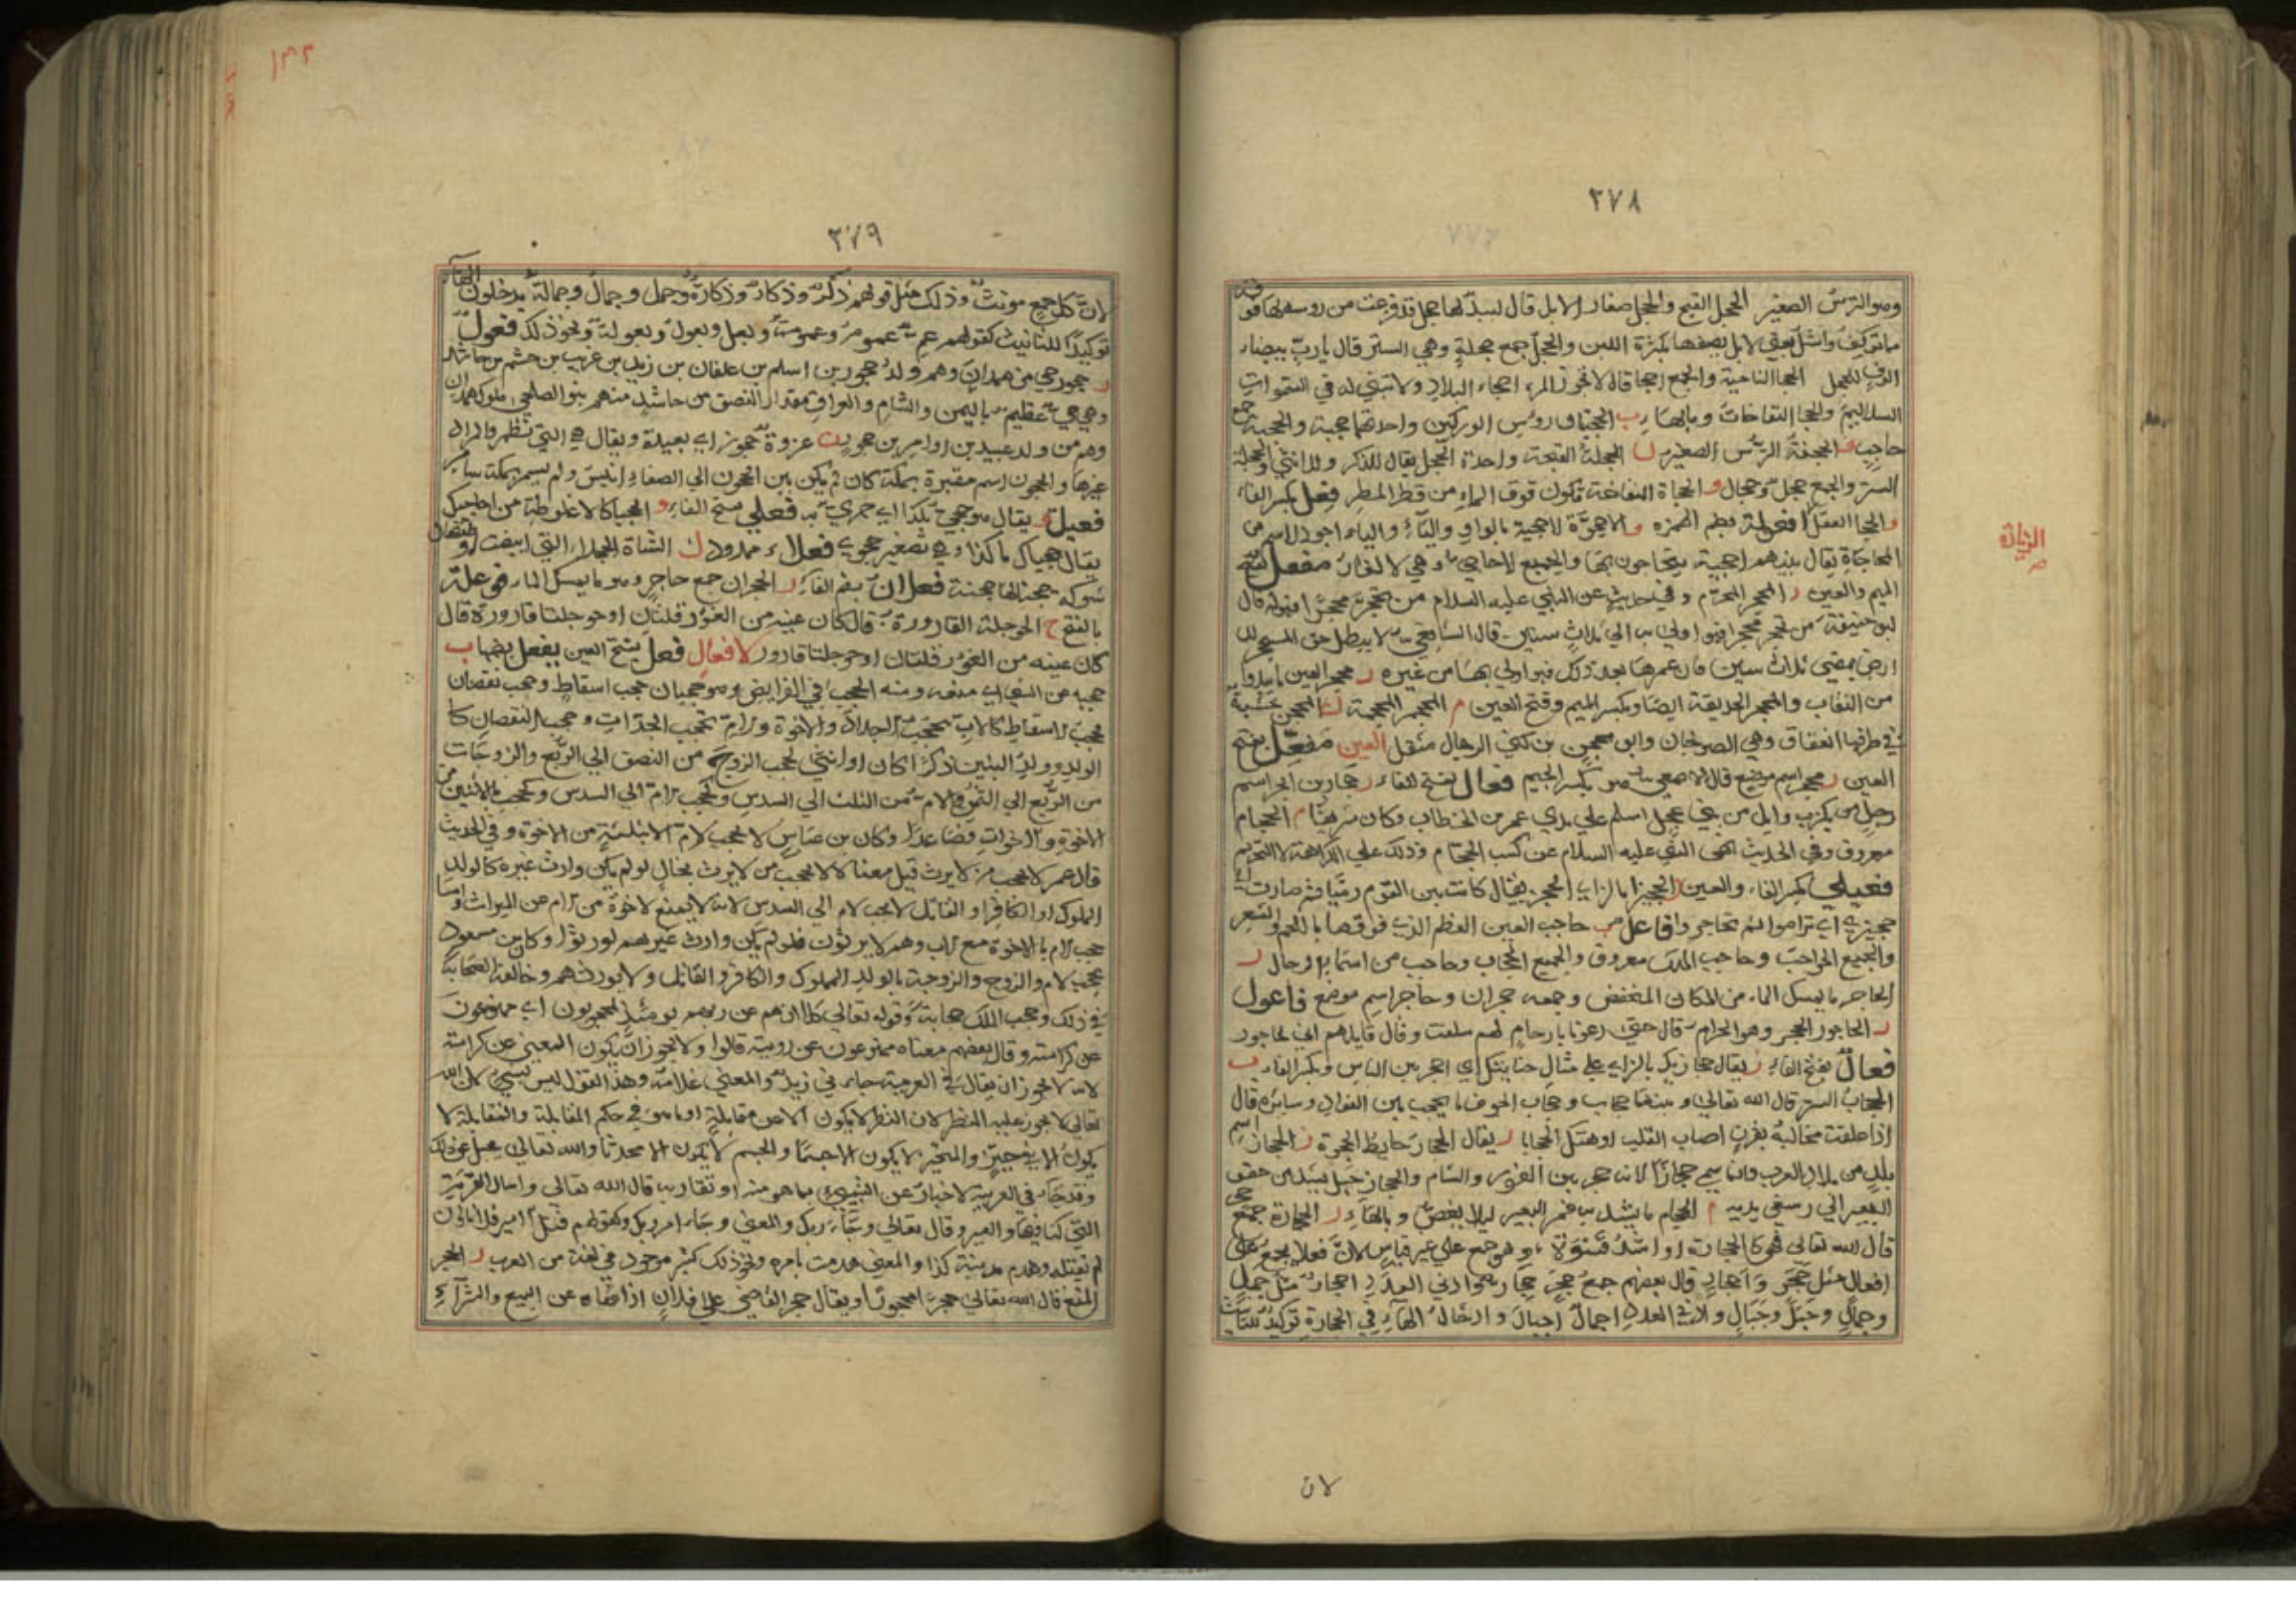 ٢٧٨
وهو الترس الصغير الحجل القبج والحجل صغار الابل قال لبيد لها حجل قد قرعت من روسه لها فوق
ما تولف واشل يعني لابل يصفها بكثرة اللبن والحجل جمع حجلة وهي الستر قال يا رب بيضاء
الوف للحجل الحجا الناحية والجمع احجا قال لا تحرز المرء احجاء البلاد ولا تبنى له في السموات
السلاليم والحجا النفاخات وبالهاء ب الحجبتان روس الوركين واحدتهما حجبة والحجبة جمع
حاجب ف الحجفة الترس الصغير ل الحجلة القبجة واحدة الحجل يقال للذكر وللانثى والحجلة
الستر والجمع حجل وحجال و الحجاة النفاخة تكون فوق الماء من قطر المطر فعل بكسر الفاء
و الحجا العقل افعولة بضم الهمزه و الاحجوة لاحجية بالواو والياء والياء اجود الاسم من
المحاجاة يقال بينهم احجية يتحاجون بها والجميع الاحاجي وهي لالغاز مفعل بفتح
الميم والعين ر المحجر المحرم وفي حديث عن النبي عليه السلام من تحجر محجرا فهو له قال
ابو حنيفة من تحجر محجرا فهو اولى به الي ثلاث سنين قال الشافعي لا يبطل حق المتحجر لل
ارض بمضي ثلاث سنين فان عمرها بعد ذلك فهو اولى بها من غيره ر محجر العين ما يبدوا
من النقاب والمحجر الحديقة ايضا وبكسر الميم وفتح العين م المحجم المحجمة ن المحجن خشبة
في طرفها انعقاق وهي الصولجان وابو محجن من كنى الرجال مثقل العين مفعل بفتح
العين ر محجر اسم موضع قال الاصمعي هو بكسر الجيم فعال بفتح الفاء ر حجار بن ابجر اسم
رجل من بكر بن وايل من بني عجل اسلم علي يدي عمر بن الخطاب وكان شريفا م الحجام
معروف وفي الحديث نهى النبي عليه السلام عن كسب الحجام وذلك علي الكراهة لا التحريم
فعيلى بكسر الفاء والعين ز الحجيزا بالزاي الحجز يقال كانت بين القوم رميا ثم صارت الى
حجيزى اي تراموا ثم تحاجزوا فاعل ب حاجب العين العظم الذي فوقها باللحم والشعر
والجميع الحواجب وحاجب الملك معروف والجميع الحجاب وحاجب من اسماء الرجال ر
الحاجر ما يمسك الماء من المكان المنخفض وجمعه حجران وحاجر اسم موضع فاعول
ر الحاجور الحجر وهو الحرام قال حتى دعونا بارحام لهم سلفت وقال قايلهم اني بحاجور
فعال بفتح الفاء ز يقال حجازيك بالزاي علي مثال حنانيك اي احجز بين الناس وبكسر الفاء ب
الحجاب الستر قال الله تعالى وبينهما حجاب وحجاب الجوف ما يحجب بين الفواد وسائره قال
اذا علقت مخالبه بقرن اصاب القلب او هتك الحجابا ر يقال الحجار حايط الحجرة ز الحجاز اسم
بلد من بلاد العرب وانما سمي حجازا لانه حجز بين الغور والشام والحجاز حبل يشد من حقو
البعير الي رسغي يديه م الحجام ما يشد به فم البعير ليلا يعض وبالهاء ر الحجارة جمع حجر
قال الله تعالى فهي كالحجارة او اشد قسوة وهو جمع علي غير قياس لان فعلا يجمع على
افعال مثل حجر واحجار قال بعضهم جمع حجر حجار وادنى العدد احجار مثل جمل
وجمال وجبل وجبال ولادنى العدد اجمال اجبال وادخال الهاء في الحجارة توكيد للتانيث
لان
الزيادة
صح
٢٧٩
لان كل جمع مونث وذلك مثل قولهم ذكر وذكار وذكارة وجمل وجمال وجمالة يدخلون الهاء
توكيدا للتانيث كقولهم عم عموم وعمومة وبعل وبعول وبعولة ونحو ذلك فعول
ر حجور حي من همدان وهم ولد حجور بن اسلم بن عليان بن زيد بن عريب بن جشم بن حاشد
وهي حي عظيم باليمن والشام والعراق مقدار النصف من حاشد منهم بنو الصليحي ملوك همدان
وهم من ولد عبيد بن اوام بن حجور ن غزوة حجون اي بعيدة ويقال هي التي تظهر والمراد
غيرها والحجون اسم مقبرة بمكة كان لم يكن بين الحجون الي الصفا انيس ولم يسمر بمكة سامر
فعيل و يقال هو حجي بكذا اي حري به فعلى بفتح الفاء و الحجيا كالاغلوطة من احاجيك
يقال حجياك ما كذا وهي تصغير حجوى فعلاء ممدود ن الشاة الحجلاء التي ابيضت اوظفتها
شوكة حجناء لها حجنة فعلان بضم الفاء ر الحجران جمع حاجر وهو ما يمسك الماء فوعلة
بالفتح ح الحوجلة القارورة قال كان عينيه من الغور قلتان او حوجلتا قارورة قال
كان عينه من الغور قلتان او حوجلتا قارور لافعال فعل بفتح العين يفعل بضمها ب
حجبه عن الشي اي منعه ومنه الحجب في الفرايض وهو حجبان حجب اسقاط وحجب نقصان
فحجب لاسقاط كالاب يحجب الجداد والاخوة والام تحجب الجدات وحجب النقصان كا
لولد وولد البنين ذكرا كان او انثى يحجب الزوج من النصف الي الربع والزوجات
من الربع الي الثمن والام من الثلث الي السدس وتحجب الام الي السدس وتحجب بالاثنين من
الاخوة والاخوات فصاعدا وكان بن عباس لا يحجب الام الا بثلثة من الاخوة وفي الحديث
قال عمر لا يحجب من لا يرث قيل معناه لا يحجب من لا يرث بحال لو لم يكن وارث غيره كالولد
المملوك او الكافر او القاتل لا يحجب لام الي السدس لانه لا يمنع لاخوة من الام من الميراث واما
حجب الام بالاخوة مع الاب وهم لا يرثون فلو لم يكن وارث غيرهم لورثوا وكان بن مسعود
يحجب لام والزوج والزوجة بالولد المملوك والكافر والقاتل ولا يورثهم وخالفه الصحابة
في ذلك وحجب الملك حجابة وقوله تعالى كلا انهم عن ربهم يومئذ لمحجوبون اي ممنوعون
عن كرامته وقال بعضهم معناه ممنوعون عن رويته قالوا ولا يجوز ان يكون المعنى عن كرامته
لانه لا يجوز ان يقال في العربية جاءني زيد والمعنى غلامه وهذا القول ليس بشي لان الله
تعالى لا يجوز عليه النظر لان النظر لا يكون الا عن مقابلة او ما هو في حكم المقابلة والمقابلة لا
يكون الا في حيز والمتحيز لا يكون الا جسما والجسم لا يكون الا محدثا والله تعالى يجل عن ذلك
وقد جاء في العربية لاخبار عن الشيء بما هو منه او تقاربه قال الله تعالى واسال القرية
التي كنا فيها والعير وقال تعالى وجاء ربك والمعنى وجاء امر ربك وكقولهم قتل امير فلانا وان
لم يقتله وهدم مدينة كذا والمعنى هدمت بامره ونحو ذلك كثير موجود في لغة من العرب ر الحجر
المنع قال الله تعالى حجرا محجورا ويقال حجر القاضي على فلان اذا نهاه عن البيع والشراء